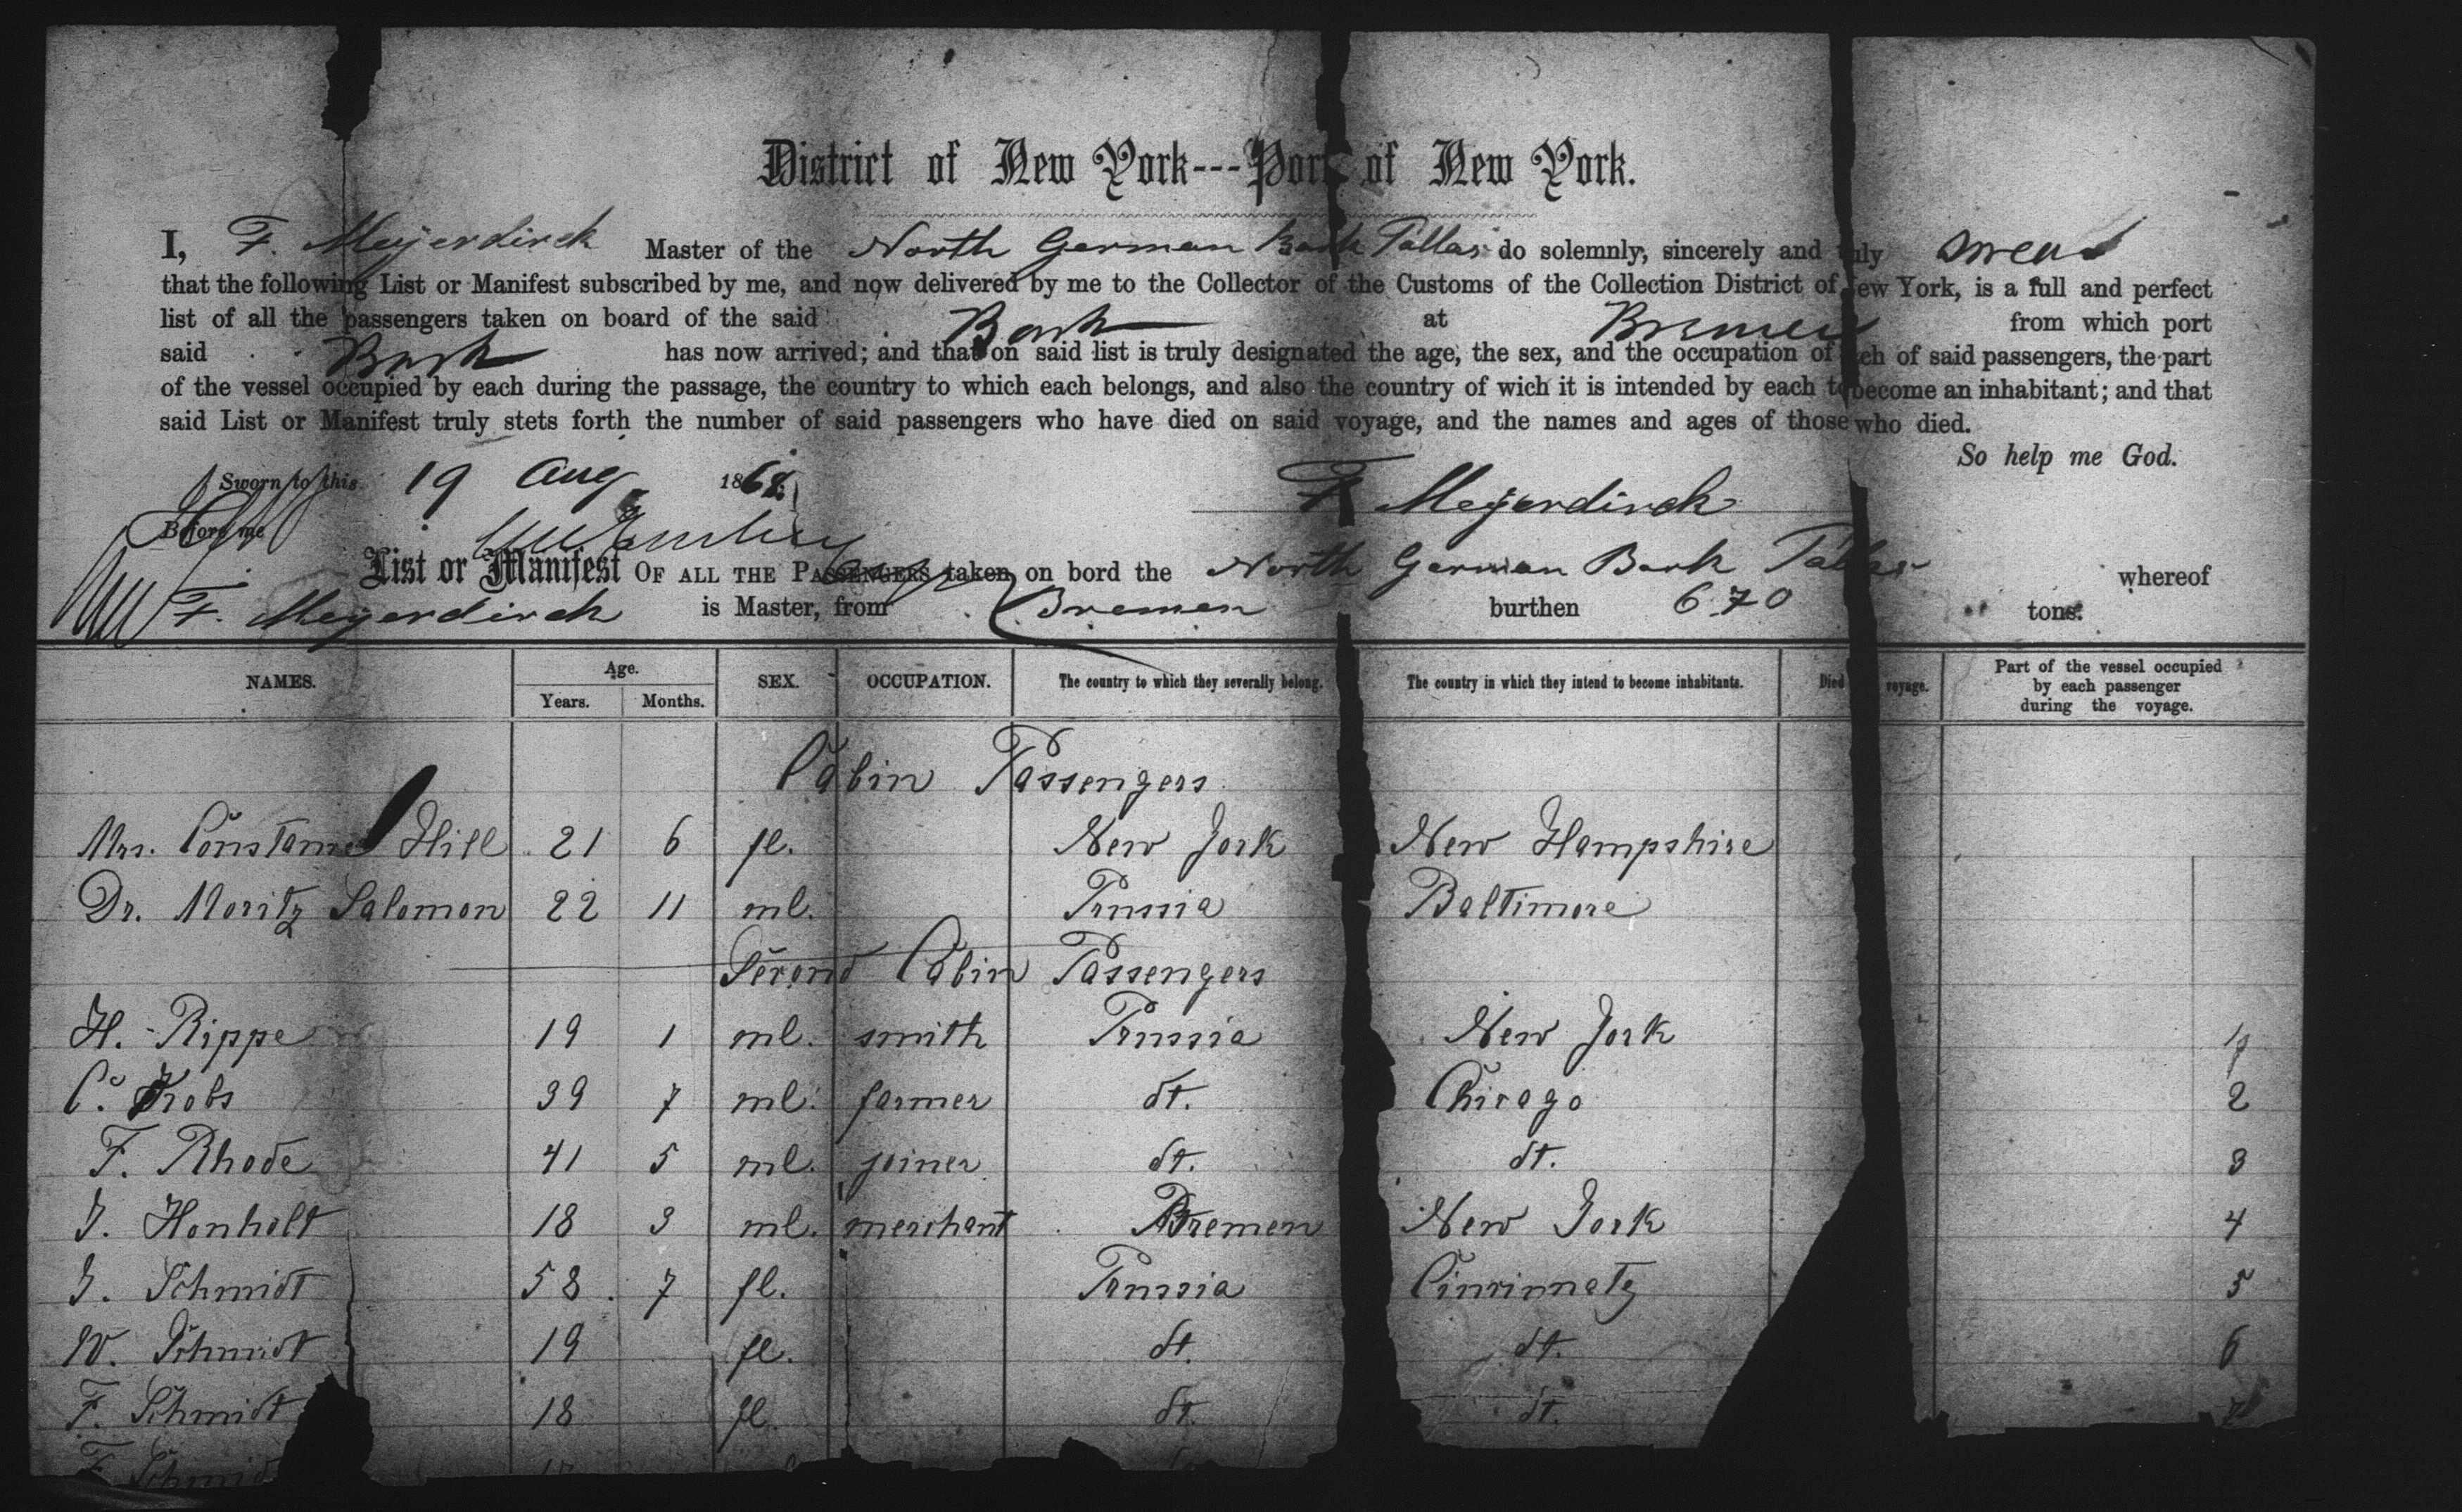 District of New York---Port of New York.
I, F. Meyerdirck Master of the North German Bark Pallas do solemnly, sincerely and truly swear
that the following List or Manifest subscribed by me, and now delivered by me to the Collector of the Customs of the Collection District of New York, is a full and perfect
list of all the passengers taken on board of the said Bark at Bremen from which port
said Bark has now arrived; and that on said list is truly designated the age, the sex, and the occupation of each of said passengers, the part
of the vessel occupied by each during the passage, the country to which each belongs, and also the country of wich it is intended by each to become an inhabitant; and that
said List or Manifest truly stets forth the number of said passengers who have died on said voyage, and the names and ages of those who died.
So help me God.
Sworn to this 19 Aug 1868
F Meyerdirck
Before me
List or Manifest OF ALL THE PASSENGERS taken on bord the North German Bark Pallas whereof
F. Meyerdirck is Master, from Bremen burthen 670 tons.
NAMES. Age. Years. Months. SEX. OCCUPATION. The country to which they severally belong. The country in which they intend to become inhabitants. Died voyage. Part of the vessel occupied by each passenger during the voyage.
Cabin Passengers
Mrs. Hill 21 6 fl. New York New Hampshire
Dr. Moritz Salomon 22 11 ml. Prussia Baltimore
Second Cabin Passengers
H. Rippe 19 1 ml. smith Prussia New York 1
C. Krobs 39 7 ml. farmer dt. Chicago 2
F. Rhode 41 5 ml. joiner dt. dt. 3
J. Honholt 18 3 ml. merchant Bremen New York 4
J. Schmidt 58 7 fl. Prussia Cincinnatz 5
W. Schmidt 19 fl. dt. dt. 6
F. Schmidt 18 fl. dt. dt. 7
F. Schmidt